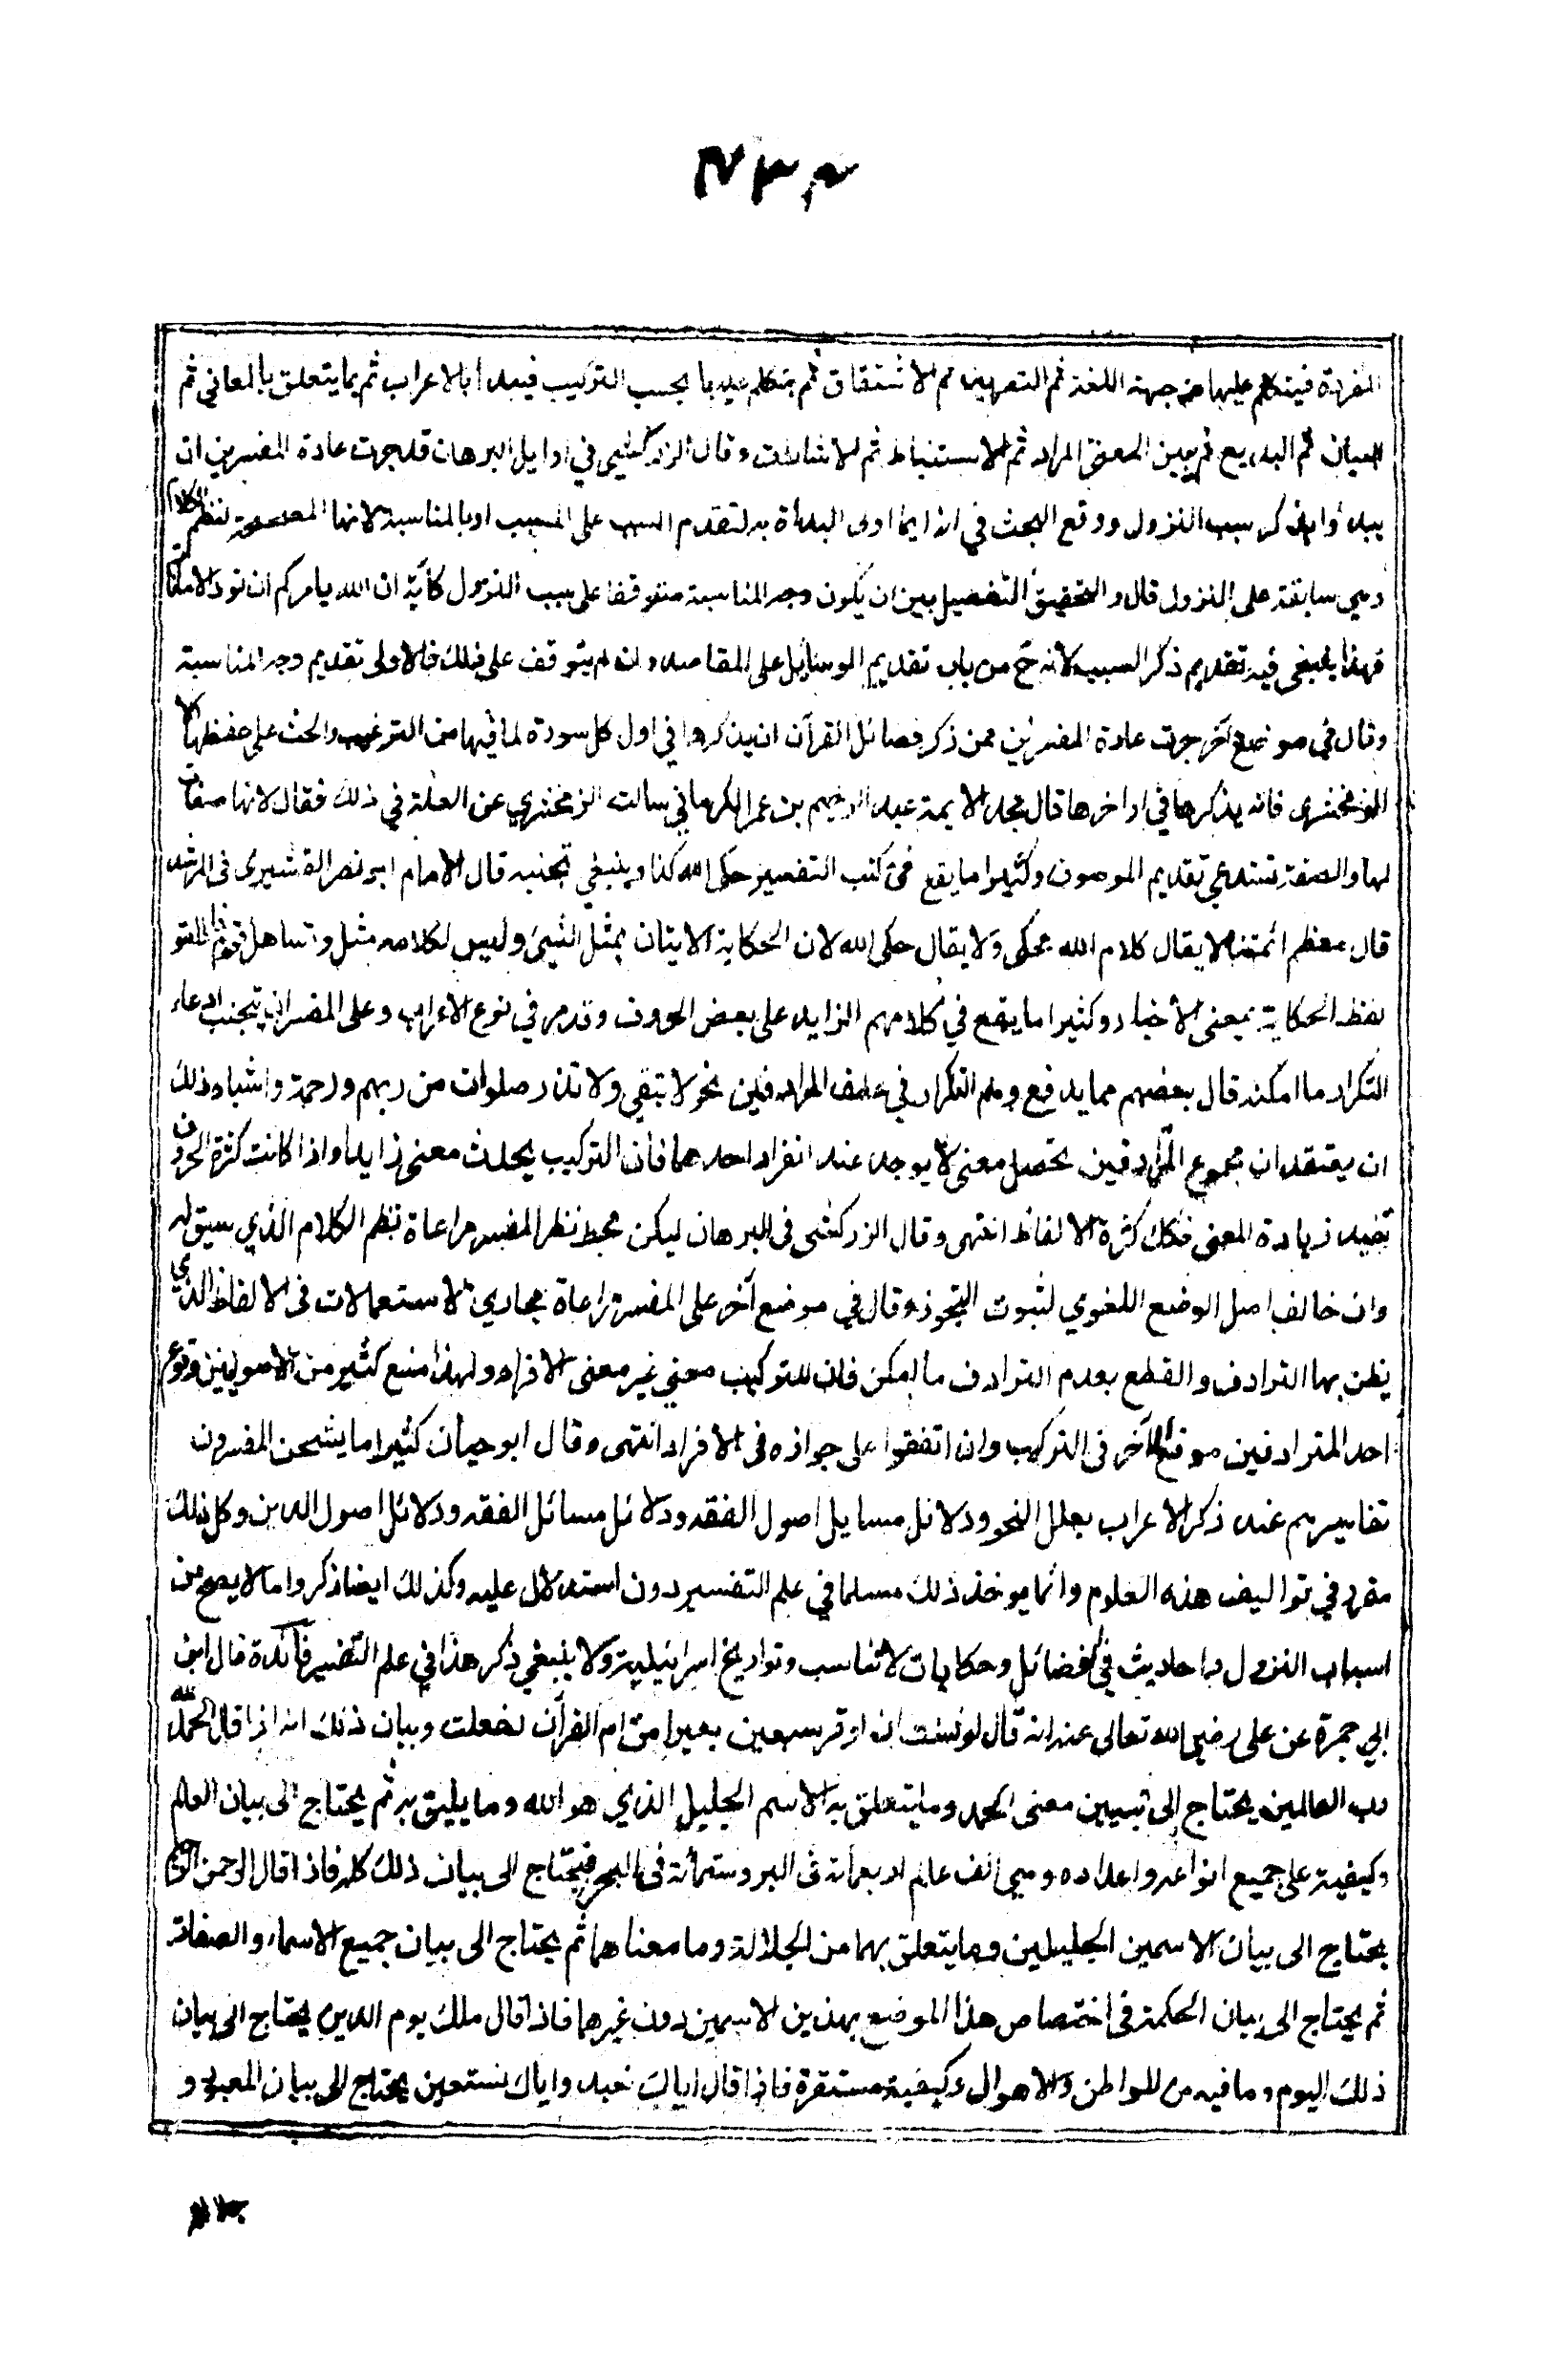 المفردة فيتكلم عليها من جهة اللغة ثم التصريف ثم الاشتقاق ثم يتكلم عليها بحسب التركيب فيبدأ بالاعراب ثم بما يتعلق بالمعاني ثم
البيان ثم البديع ثم يبين المعنى المراد ثم الاستنباط ثم الاشارات وقال الزركشي في اوايل البرهان قد جرت عادة المفسرين ان
يبدأوا بذكر سبب النزول ووقع البحث في انه ايما اولى البداة به لتقدم السبب على المسبب او بالمناسبة لانها المصححة لنظم الكلام
وهي سابقة على النزول قال والتحقيق التفصيل بين ان يكون وجه المناسبة متوقفا على سبب النزول كآية ان الله يامركم ان تودوا الامانات
فهذا ينبغي فيه تقديم ذكر السبب لانه ح من باب تقديم الوسايل على المقاصد وان لم يتوقف على ذلك فالاولى تقديم وجه المناسبة
وقال في موضع آخر جرت عادة المفسرين ممن ذكر فضائل القرآن ان يذكروا في اول كل سورة لما فيها من الترغيب والحث على حفظها الا
الزمخشري فانه يذكرها في اواخرها قال مجد الايمة عبد الرحيم بن عمر الكرماني سالت الزمخشري عن العلة في ذلك فقال لانها صفات
لها والصفة تستدعي تقديم الموصوف وكثيرا ما يقع في كتب التفسير حكى الله كذا وينبغي تجنبه قال الامام ابو نصر القشيري في المرشد
قال معظم ائمتنا لا يقال كلام الله محكى ولا يقال حكى الله لان الحكاية الاتيان بمثل الشيئ وليس لكلامه مثل وتساهل قوم فاطلقو
لفظ الحكاية بمعنى الأخبار وكثيرا ما يقع في كلامهم الزايد على بعض الحروف وقد مر في نوع الاعراب وعلى المفسر ان يتجنب ادعاء
التكرار ما امكنه قال بعضهم مما يدفع وهم التكرار في عطف المرادفين نحو لا تبقي ولا تذر صلوات من ربهم ورحمة واشباه ذلك
ان يعتقد ان مجموع المرادفين تحصل معنى لا يوجد عند انفراد احدهما فان التركيب يحدث معنى زايدا واذا كانت كثرة الحروف
تفيد زيادة المعنى فكك كثرة الالفاظ انتهى وقال الزركشى في البرهان ليكن محط نظر المفسر مراعاة نظم الكلام الذي سيق له
وان خالف اصل الوضع اللغوي لثبوت التجوز وقال في موضع آخر على المفسر مراعاة مجاري الاستعمالات في الالفاظ الذي
يظن بها الترادف والقطع بعدم الترادف ما امكن فان للتركيب معني غير معنى الافراد ولهذا منع كثير من الاصوليين وقوع
احد المترادفين موقع الآخر فى التركيب وان اتفقوا على جوازه فى الافراد انتهى وقال ابو حيان كثيرا ما يشحن المفسرون
تفاسيرهم عند ذكر الاعراب بعلل النحو ودلائل مسايل اصول الفقه ودلائل مسائل الفقه ودلائل اصول الدين وكل ذلك
مقرر في تواليف هذه العلوم وانما يوخذ ذلك مسلما في علم التفسير دون استدلال عليه وكذلك ايضا ذكروا ما لا يصح من
اسباب النزول واحاديث في الفضائل وحكايات لا تناسب وتواريخ اسرائيلية ولا ينبغي ذكر هذا في علم التفسير فائدة قال ابن
ابي جمرة عن على رضي الله تعالى عنه انه قال لو شئت ان اوقر سبعين بعيرا من ام القرآن لفعلت وبيان ذلك انه اذا قال الحمد لله
رب العالمين يحتاج الى تبيين معنى الحمد وما يتعلق به الاسم الجليل الذي هو الله وما يليق به ثم يحتاج الى بيان العالم
وكيفيته على جميع انواعه واعداده وهي الف عالم اربعمائة في البر وستمائة في البحر فيحتاج الى بيان ذلك كله فاذا قال الرحمن الرحيم
يحتاج الى بيان الاسمين الجليلين وما يتعلق بهما من الجلالة وما معناهما ثم يحتاج الى بيان جميع الاسماء والصفات
ثم يحتاج الى بيان الحكمة فى اختصاص هذا الموضع بهذين الاسمين دون غيرهما فاذا قال ملك يوم الدين يحتاج الى بيان
ذلك اليوم وما فيه من المواطن والاهوال وكيفية مستقرة فاذا قال اياك نعبد واياك نستعين يحتاج الى بيان المعبود و